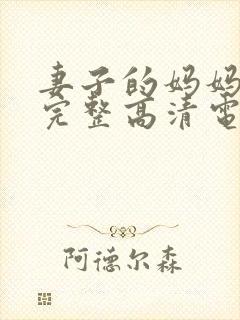 妻子的妈妈
完整高清電
阿德尔森